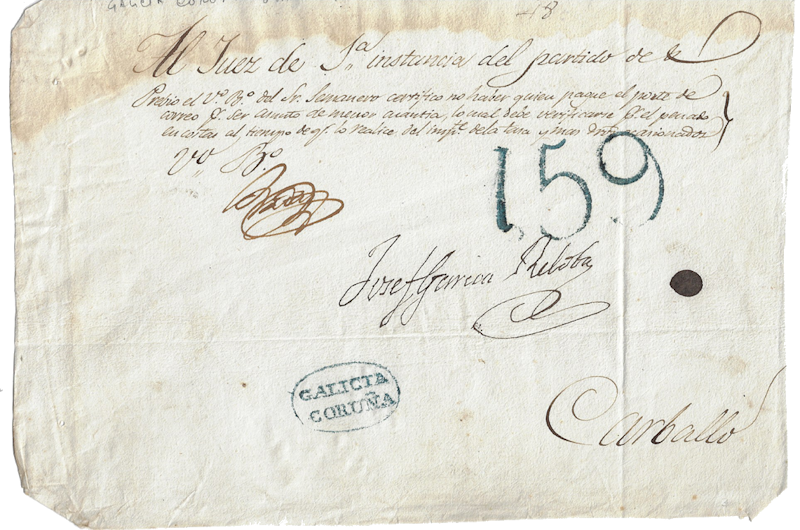 GALICIA CORU
48
Al Juez de 1ª instancia del partido de
Previo el Vº Bº del Sr. Semanero certifico no haber quien pague el porte de
correo pr. ser asunto de menor cuantia, lo cual debe verificarse pr. el penado
en costas al tiempo de qe. lo realice del impte. de la tasa y mas
Vº Bº
159
Josef Garcia
GALICIA
CORUÑA
Carballo